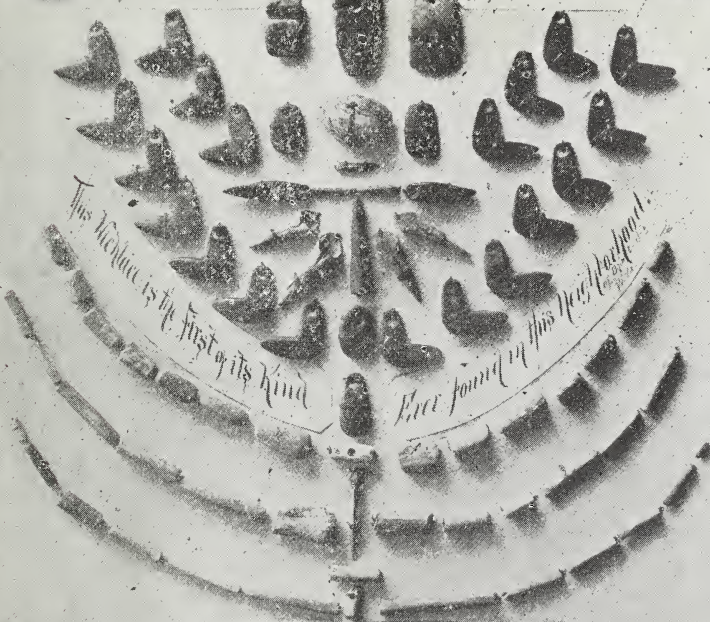 This Necklace is the First of its Kind
Ever found in this Neighborhood.